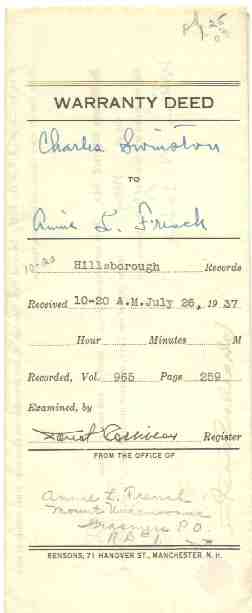 WARRANTY DEED
Charles Swinston
TO
Annie L. French
10-20 Hillsborough Records
Received 10-20 A.M. July 26, 1937
Hour Minutes M
Recorded, Vol. 965 Page 259
Examined, by
Register
FROM THE OFFICE OF
Annie L. French
Mount
Grasmere P.O.
R.D. 1
BENSONS, 71 HANOVER ST., MANCHESTER, N. H.